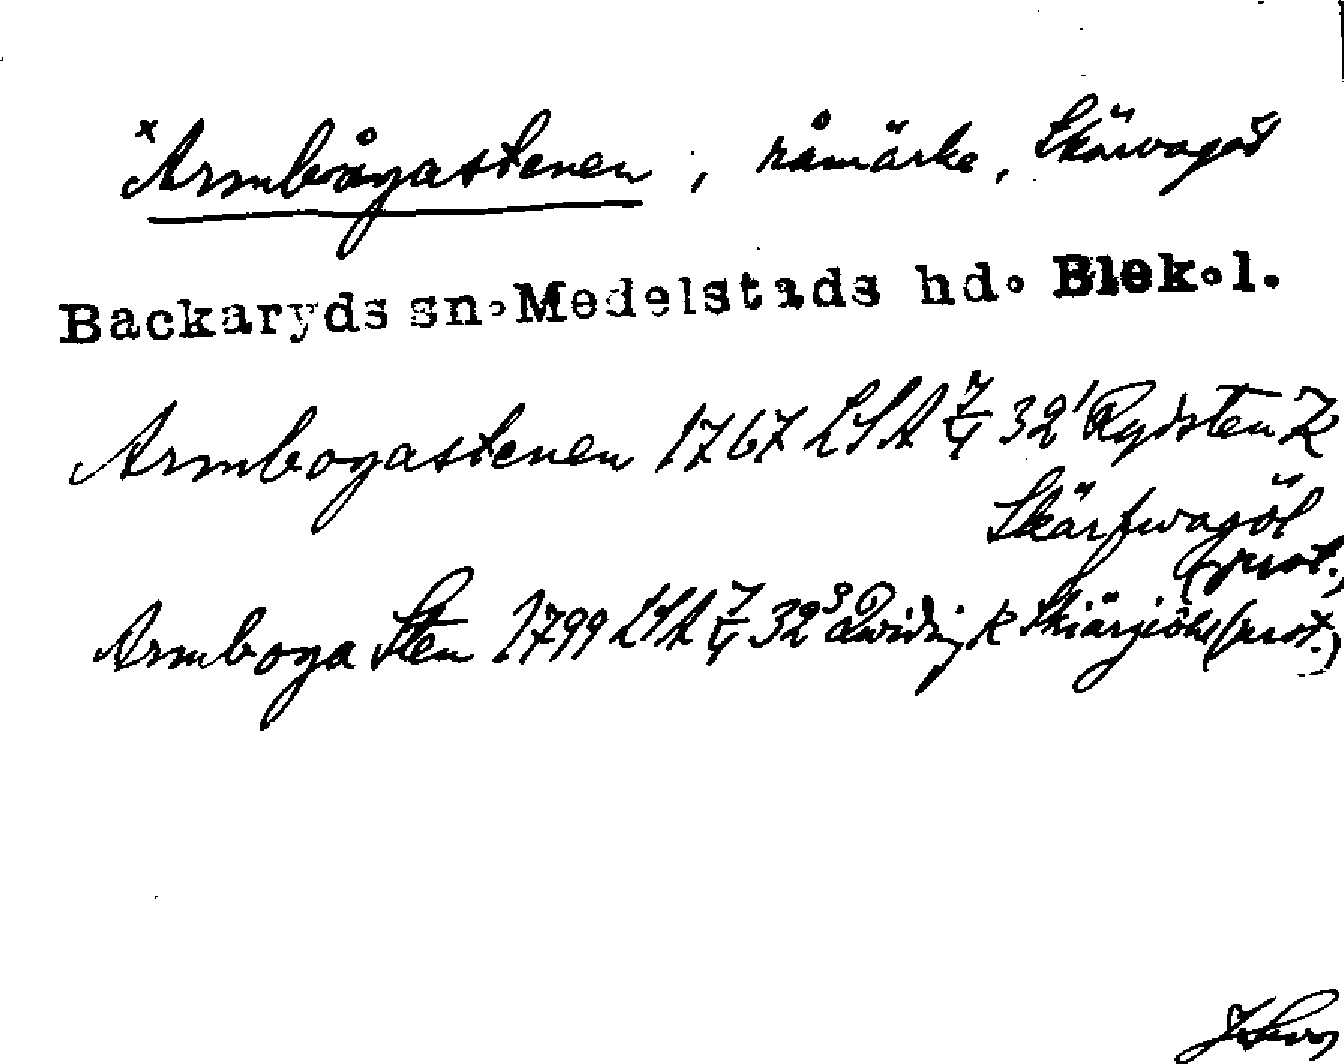 ×Armbågastenen, råmärke, Skärvagöl
Backaryds sn. Medelstads hd. Blek.l.
Armbogastenen 1767 LSA 7/4 32¹ Rydsten R
Skärfwagöl
(prot.)
Armboga Sten 1799 LSA 7/4 32³ R Skiärgiöhl (prot.)